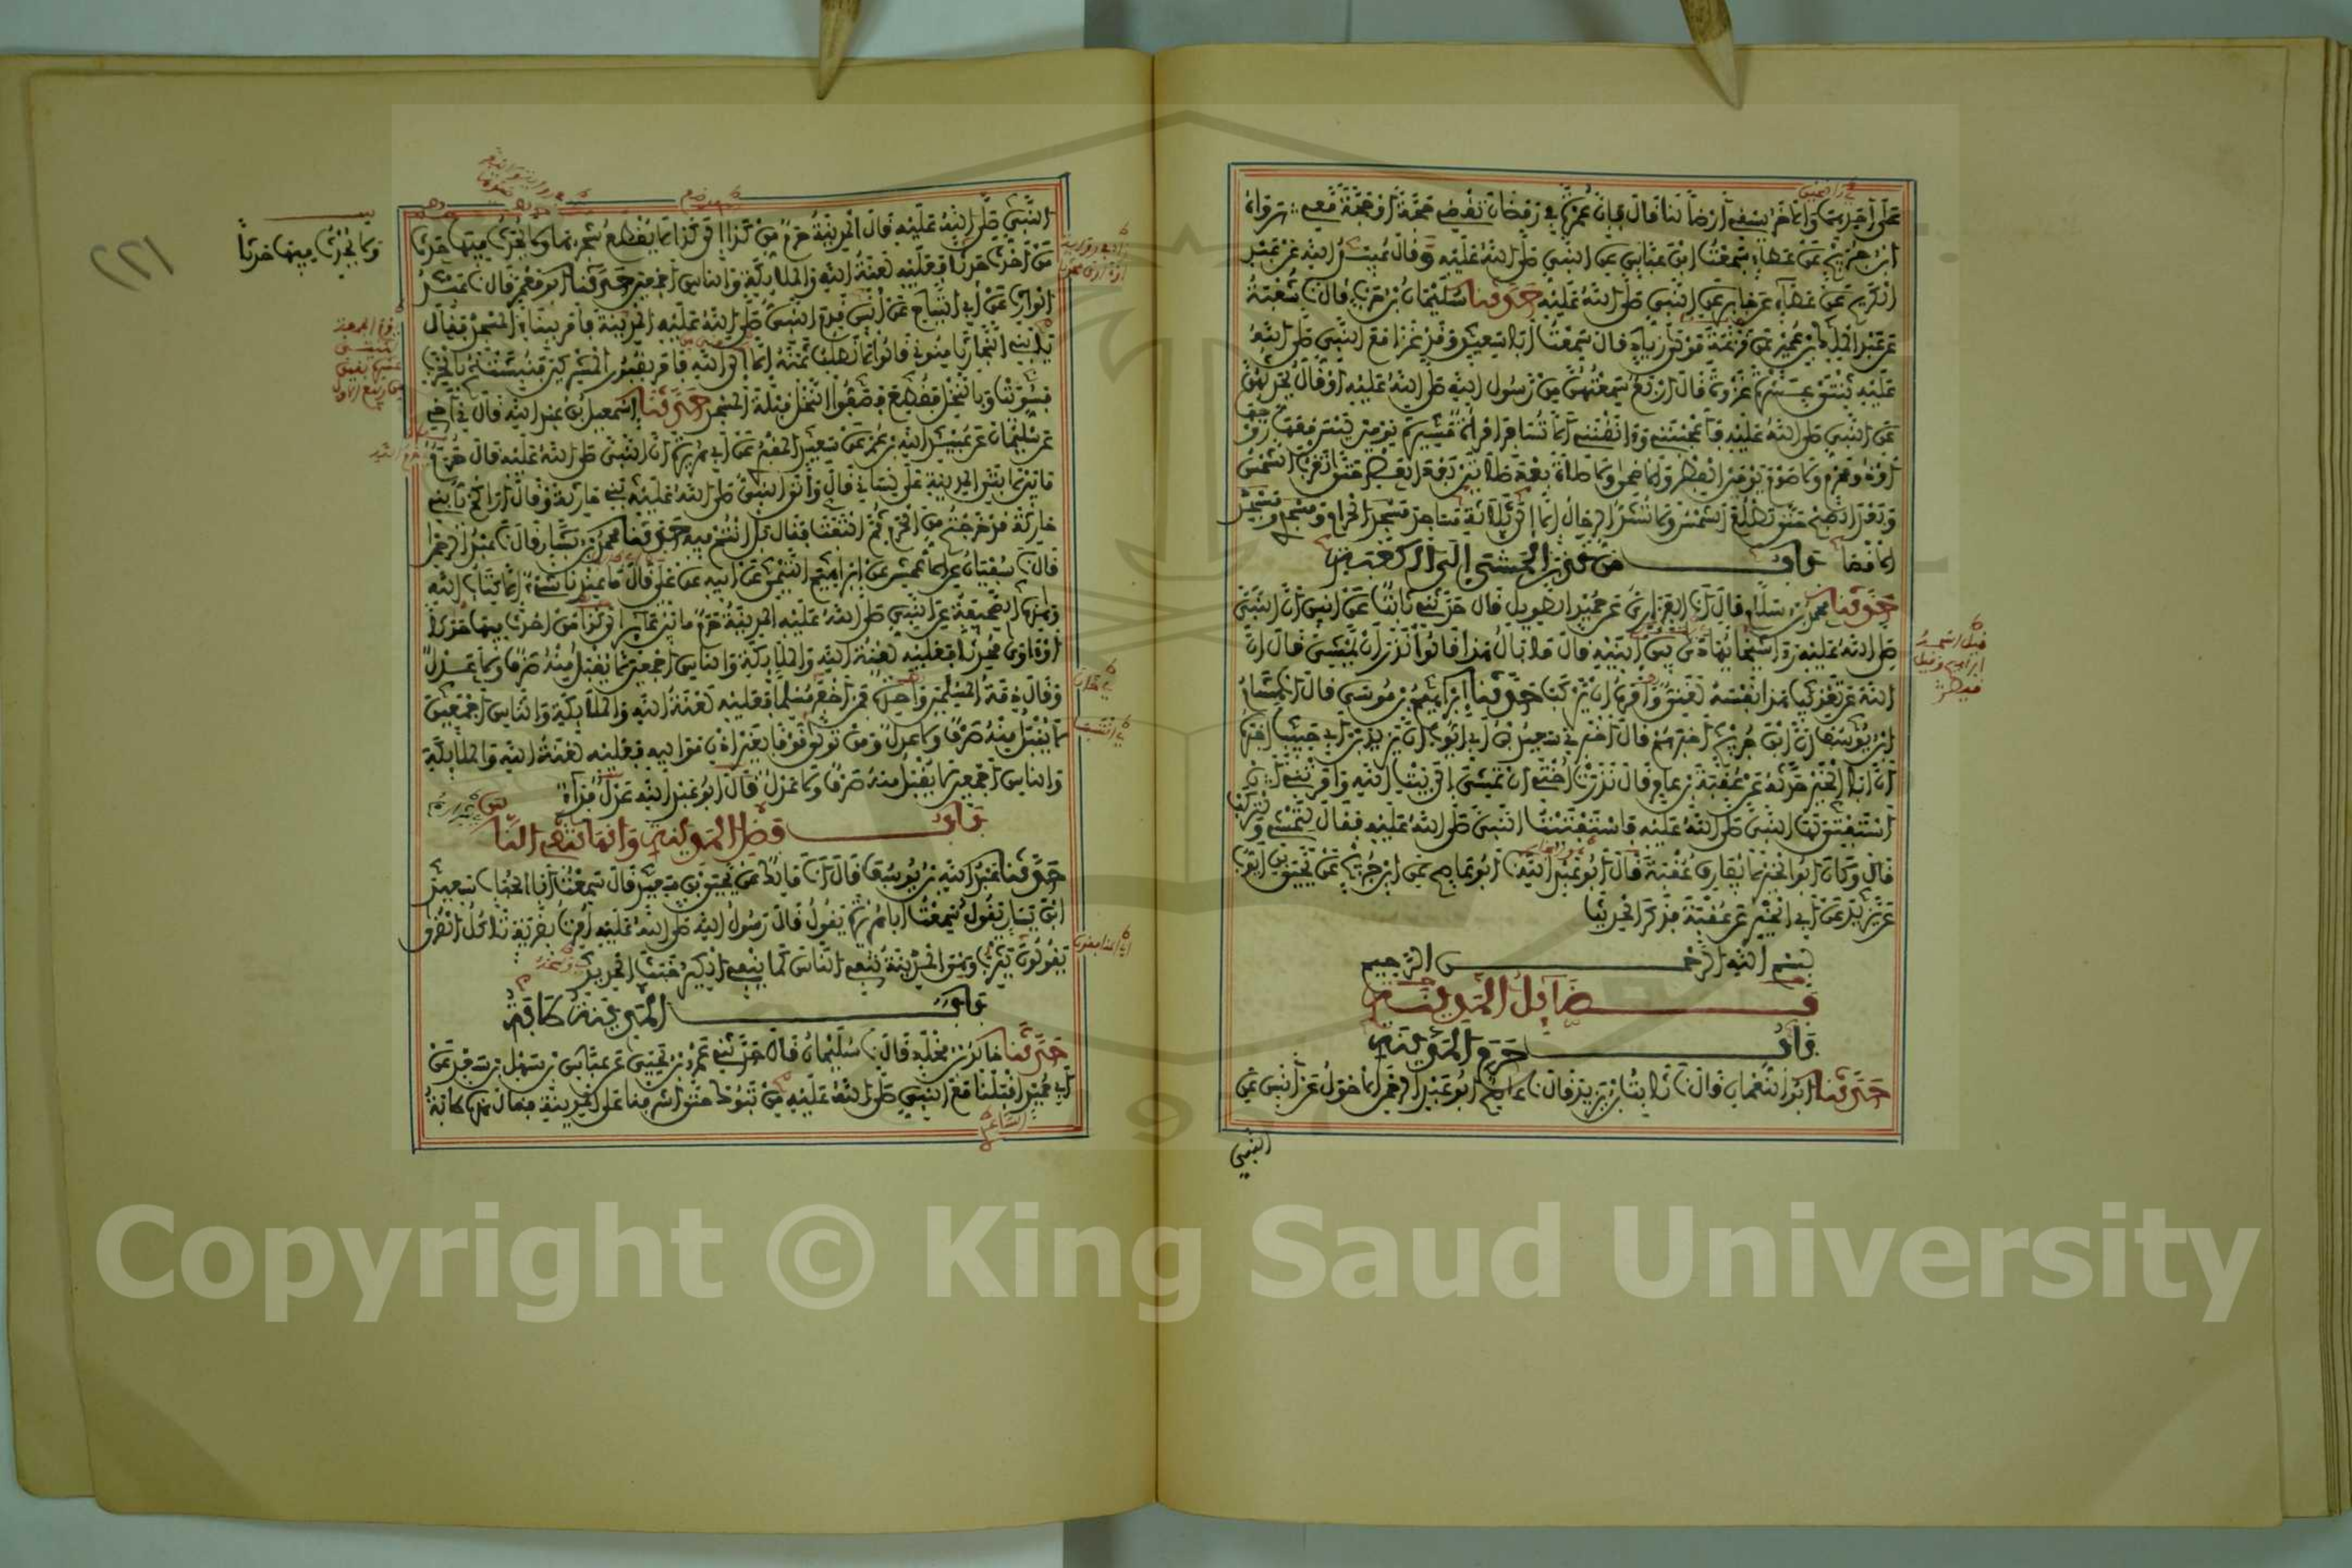 على أحدهما والآخر يسقي أرضا لنا قال فإن عمرة في رمضان تقضي حجة أو حجة معي رواه
ابن جريج عن عطاء سمعت ابن عباس عن النبي صلى الله عليه وقال عبيد الله عن عبد
الكريم عن عطاء عن جابر عن النبي صلى الله عليه حدثنا سليمان بن حرب قال نا شعبة
عن عبد الملك بن عمير عن قزعة مولى زياد قال سمعت أبا سعيد وقد غزا مع النبي صلى الله
عليه ثنتي عشرة غزوة قال أربع سمعتهن من رسول الله صلى الله عليه أو قال يحدثهن
عن النبي صلى الله عليه فأعجبنني وآنقنني ألا تسافر امرأة مسيرة يومين ليس معها زوجها
أو ذو محرم ولا صوم يومين الفطر والأضحى ولا صلاة بعد صلاتين بعد العصر حتى تغرب الشمس
وبعد الصبح حتى تطلع الشمس ولا تشد الرحال إلا إلى ثلاثة مساجد مسجد الحرام ومسجدي ومسجد
الأقصا باب من نذر المشي إلى الكعبة
حدثنا محمد بن سلام قال أنا الفزاري عن حميد الطويل قال حدثني ثابت عن أنس أن النبي
صلى الله عليه رأى شيخا يهادى بين ابنيه قال ما بال هذا قالوا نذر أن يمشي قال إن
الله عن تعذيب هذا نفسه لغني وأمره أن يركب حدثنا إبراهيم بن موسى قال أنا هشام
ابن يوسف أن ابن جريج أخبرهم قال أخبرني سعيد بن أبي أيوب أن يزيد بن أبي حبيب أخبره
أن أبا الخير حدثه عن عقبة بن عامر قال نذرت أختي أن تمشي إلى بيت الله وأمرتني أن
أستفتي لها النبي صلى الله عليه فاستفتيت النبي صلى الله عليه فقال لتمش ولتركب
قال وكان أبو الخير لا يفارق عقبة قال أبو عبد الله نا أبو عاصم عن ابن جريج عن يحيى بن أيوب
عن يزيد عن أبي الخير عن عقبة فذكر الحديث
بسم الله الرحمن الرحيم
فضائل المدينة
باب حرم المدينة
حدثنا أبو النعمان قال نا ثابت بن يزيد قال نا عاصم أبو عبد الرحمن الأحول عن أنس عن
النبي
النبي صلى الله عليه قال المدينة حرم من كذا إلى كذا لا يقطع شجرها ولا يحدث فيها حدث
من أحدث حدثا فعليه لعنة الله والملائكة والناس أجمعين حدثنا أبو معمر قال نا عبد
الوارث عن أبي التياح عن أنس قدم النبي صلى الله عليه المدينة فأمر ببناء المسجد فقال
يا بني النجار ثامنوني قالوا لا نطلب ثمنه إلا إلى الله فأمر بقبور المشركين فنبشت ثم بالخرب
فسويت وبالنخل فقطع فصفوا النخل قبلة المسجد حدثنا إسمعيل بن عبد الله قال ني أخي
عن سليمان عن عبيد الله بن عمر عن سعيد المقبري عن أبي هريرة أن النبي صلى الله عليه قال حرم
ما بين لابتي المدينة على لساني قال وأتى النبي صلى الله عليه بني حارثة وقال أراكم يا بني
حارثة قد خرجتم من الحرم ثم التفت فقال بل أنتم فيه حدثنا محمد بن بشار قال نا عبد الرحمن
قال نا سفيان عن الأعمش عن إبراهيم التيمي عن أبيه عن علي قال ما عندنا شيء إلا كتاب الله
وهذه الصحيفة عن النبي صلى الله عليه المدينة حرم ما بين عاير إلى كذا من أحدث فيها حدثا
أو آوى محدثا فعليه لعنة الله والملائكة والناس أجمعين لا يقبل منه صرف ولا عدل
وقال ذمة المسلمين واحدة فمن أخفر مسلما فعليه لعنة الله والملائكة والناس أجمعين
لا يقبل منه صرف ولا عدل ومن تولى قوما بغير إذن مواليه فعليه لعنة الله والملائكة
والناس أجمعين لا يقبل منه صرف ولا عدل قال أبو عبد الله عدل فداء
باب فضل المدينة وأنها تنفي الناس
حدثنا عبد الله بن يوسف قال أنا مالك عن يحيى بن سعيد قال سمعت أبا الحباب سعيد
ابن يسار يقول سمعت أبا هريرة يقول قال رسول الله صلى الله عليه أمرت بقرية تأكل القرى
يقولون يثرب وهي المدينة تنفي الناس كما ينفي الكير خبث الحديد
باب المدينة طابة
حدثنا خالد بن مخلد قال نا سليمان قال حدثني عمرو بن يحيى عن عباس بن سهل بن سعد عن
أبي حميد أقبلنا مع النبي صلى الله عليه من تبوك حتى أشرفنا على المدينة فقال هذه طابة
ولا يحدث فيها حدثا
٢٢١
Copyright © King Saud University